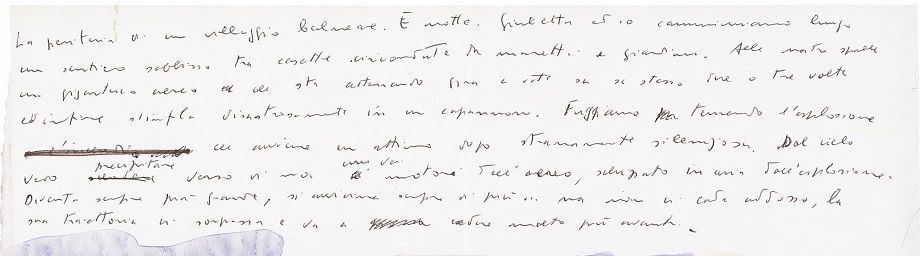 La periferia di un villaggio balneare. È notte. Giulietta ed io camminiamo lungo
un sentiero sabbioso tra casette circondate da muretti e giardini. Alle nostre spalle
un gigantesco aereo che sta atterrando gira a vite su se stesso due o tre volte
ed infine s'infila disastrosamente in un capannone. Fuggiamo temendo l'esplosione
che avviene un attimo dopo stranamente silenziosa. Dal cielo
vedo precipitare verso di noi uno dei motori dell'aereo, schizzato in aria dall'esplosione.
Diventa sempre più grande, si avvicina sempre di più ma non ci cade addosso, la
sua traiettoria ci sorpassa e va a cadere molto più avanti.